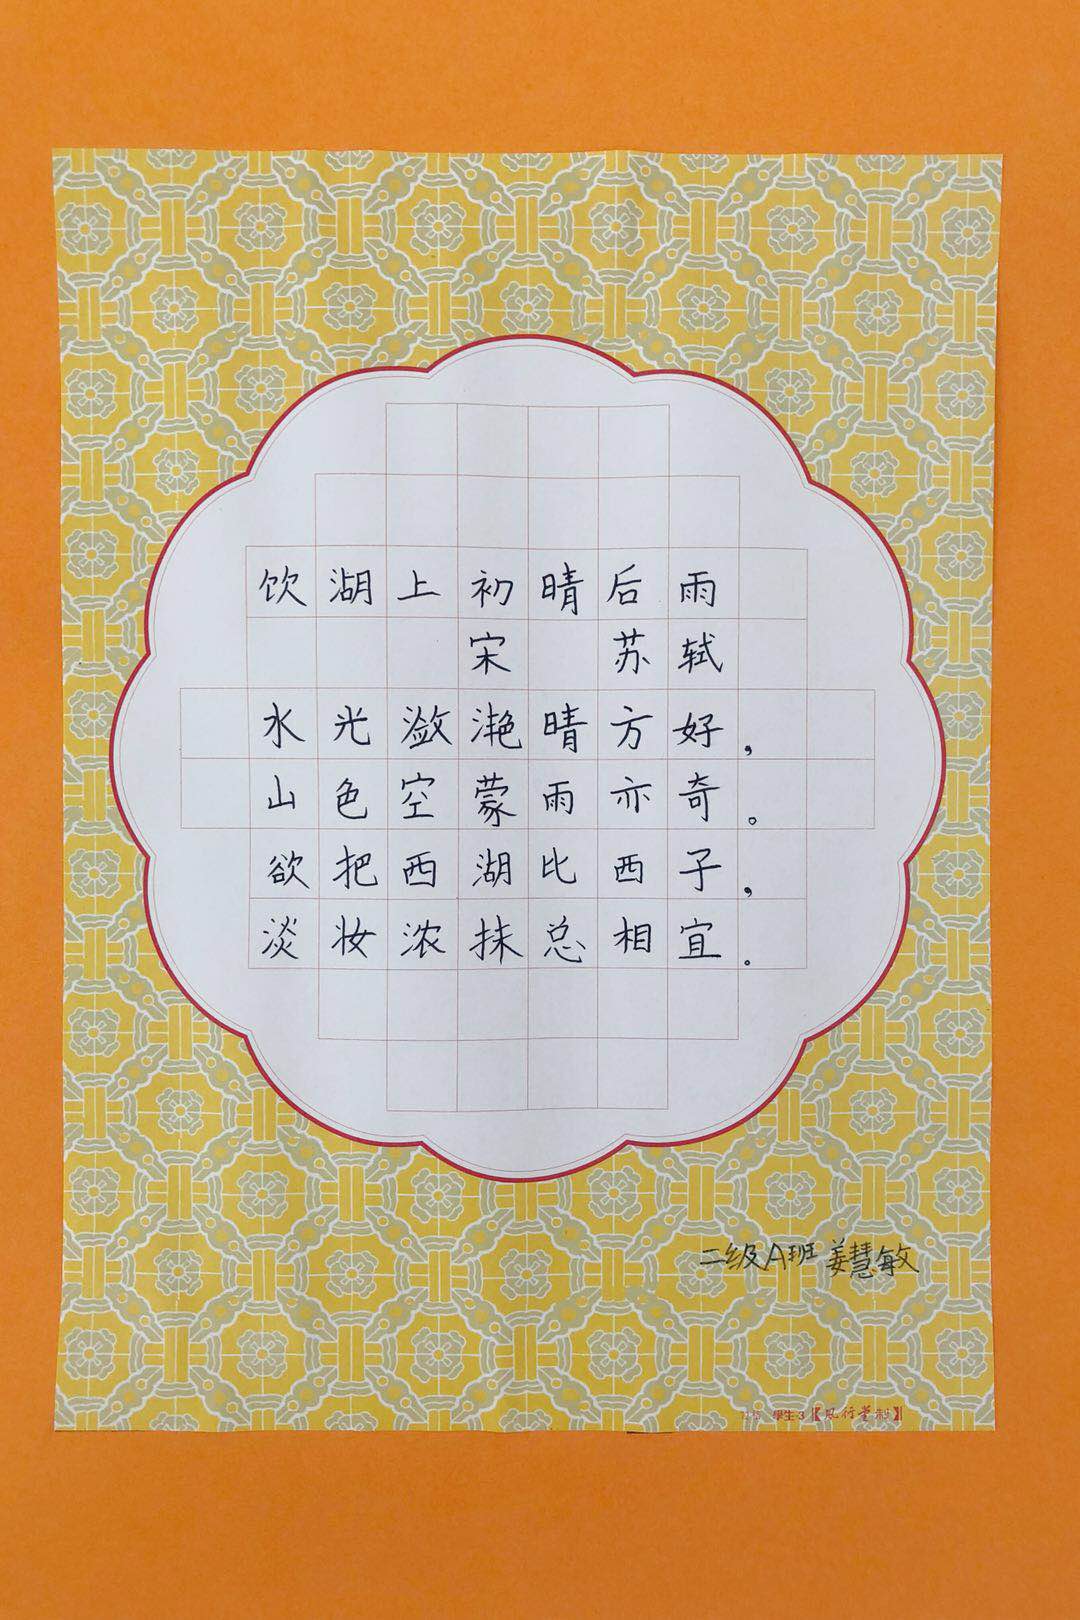 饮湖上初晴后雨
宋 苏轼
水光潋滟晴方好，
山色空蒙雨亦奇。
欲把西湖比西子，
淡妆浓抹总相宜。
二级A班 姜慧敏
學生3【风行堂制】